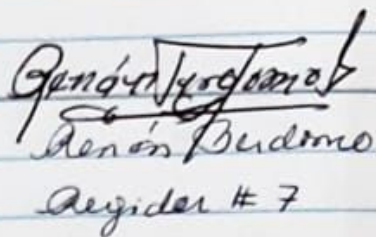 Renán Perdomo
Renán Perdomo
Regidor # 7